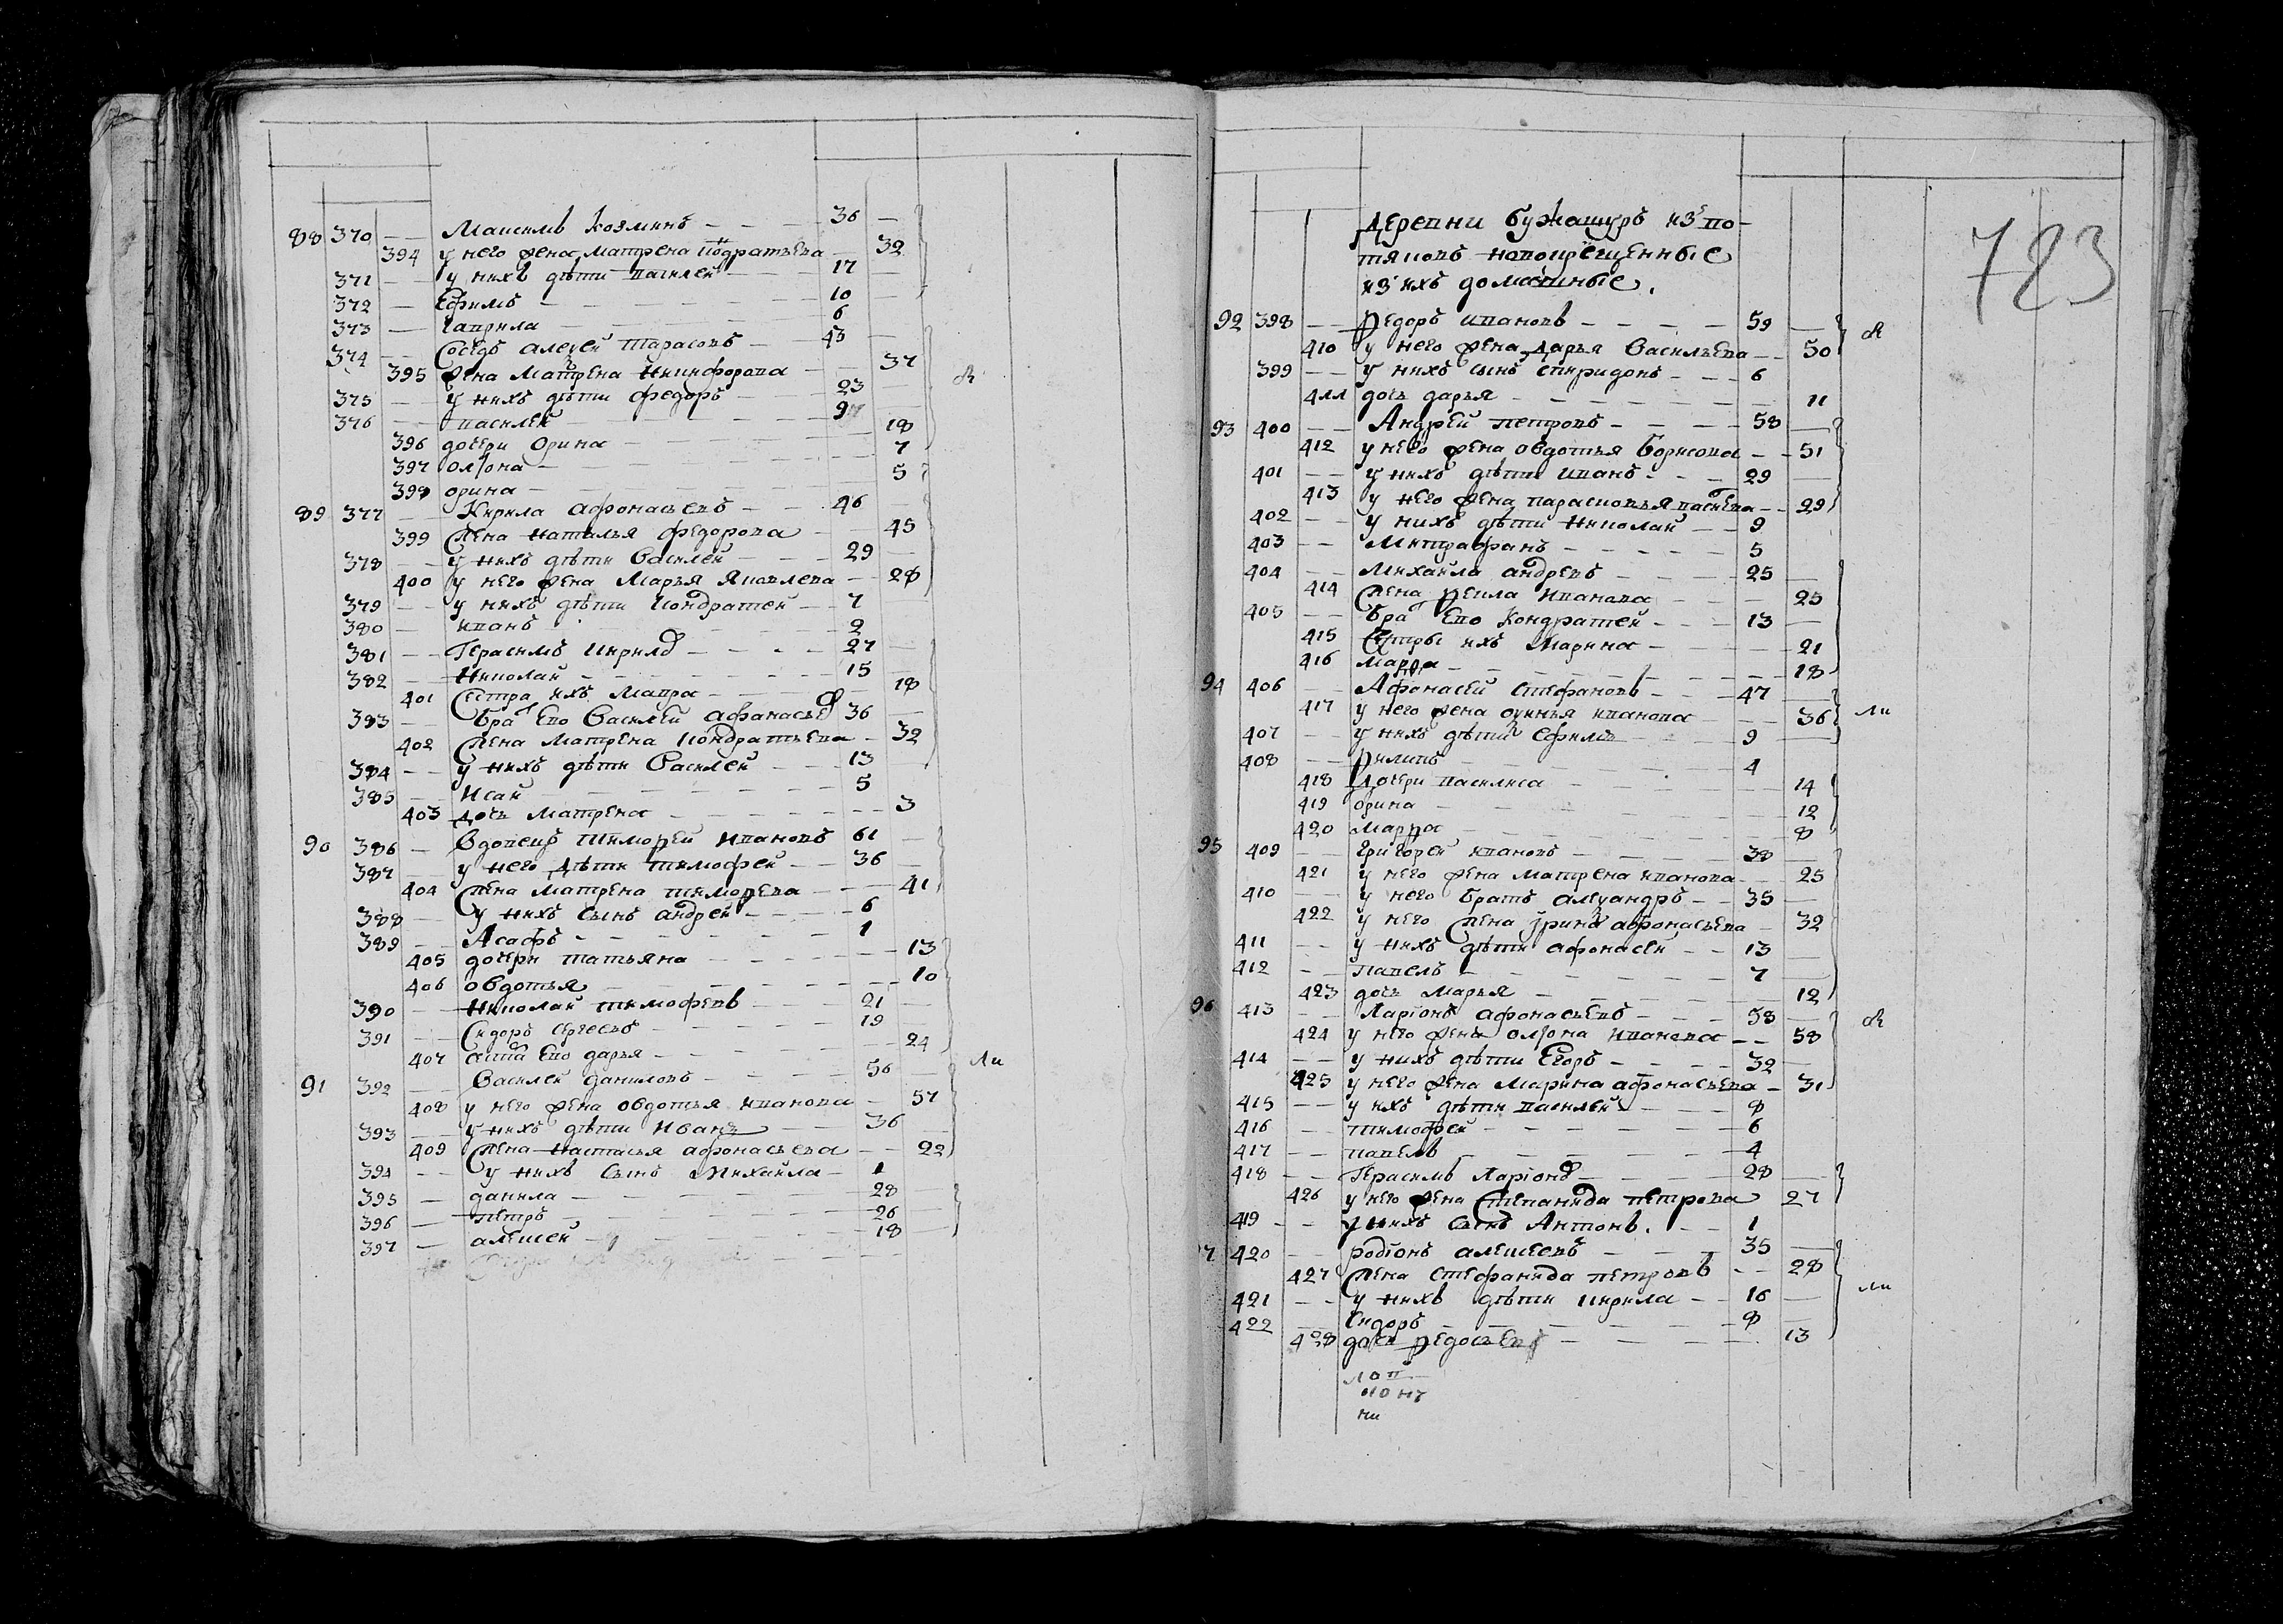 88 370 — Максимъ Козминъ — 36 —
394 у него жена Матрена Кодратьева — 32
371 — у нихъ дѣти Василей — 17 —
372 — Ефимъ — 10 —
373 — Гаврила — 6
374 — Соседъ Алексей Тарасовъ — 43 —
395 жена Матрена Никифорова — 37
375 — у нихъ дѣти Федоръ — 23 —
376 — Василей —
396 дочери Орина — 18
397 Олѳона — 7
398 Орина — 5
89 377 — Кирила Афонасьевъ — 46 —
399 жена Наталья Федорова — 45
378 — у нихъ дѣти Василей — 29 —
400 у него жена Марья Яковлева — 28
379 — у нихъ дѣти Кондратей — 7
380 — Иванъ — 2
381 — Герасимъ Кирил — 27
382 — Николай — 15
401 Сестра ихъ Мавра — 18
383 — Бра Ево Василей Афанасье 36 —
402 жена Матрена Кондратьева — 32
384 — у нихъ дѣти Василей — 13 —
385 — Исай — 5
403 дочь Матрена — 3
90 386 — Вдовецъ Тимоѳей Ивановъ 61 —
387 — у него дѣти Тимофей — 36 —
404 жена Матрена Тимоѳева — 41
388 — у нихъ сынъ Андрей — 6
389 — Асафъ — 1
405 дочери Татьяна — 13
406 Овдотья — 10
390 — Николай Тимофеевъ — 21 —
391 — Сидоръ Сергеевъ — 19
407 Ево Дарья — 24
91 392 — Василей Даниловъ — 56 — ли
408 у него жена Овдотья Иванова — 57
393 — у нихъ дѣти Иванъ — 36 —
409 жена Настасья Афонасьева — 22
394 — у нихъ сынъ Михайла — 1
395 — Данила — 28
396 — Петръ — 26
397 — Алексей — 18
723
Деревни Бужашуръ изъ во-
тяковъ новокрещенные
изъ ихъ домашные.
92 398 — Ѳедоръ Ивановъ — 59 —
410 у него жена Дарья Васильева — 50
399 — у нихъ сынъ Спиридонъ — 6
411 дочь Дарья — 11
93 400 — Андрей Петровъ — 58 —
412 у него жена Овдотья Борисова — 51
401 — у нихъ дѣти Иванъ — 29 —
413 у него жена Парасковья — 29
402 — у нихъ дѣти Николай — 9
403 — Митрафанъ — 5
404 — Михайла Андревъ — 25 —
414 жена Ѳекла Иванова — 25
405 — Бра Ево Кондратей — 13 —
415 Сестры ихъ Марина — 21
416 Марѳа — 18
94 406 — Афонасей Стефановъ — 47 — ли
417 у него жена Иванова — 36
407 — у нихъ дѣти Ефимъ — 9 —
408 — Ѳилипъ — 4
418 Дочери Василиса — 14
419 Орина — 12
420 Марѳа — 8
95 409 — Григорей Ивановъ — 38 —
421 у него жена Матрена Иванова — 25
410 — у него братъ Александръ — 35 —
422 у него жена Ирина Афонасьева — 32
411 — у нихъ дѣти Афонасей — 13 —
412 — Павелъ — 7
423 дочь Марья — 12
96 413 — Ларіонъ Афонасьевъ — 58 —
424 у него жена Олѳона Иванова — 58
414 — у нихъ дѣти Егоръ — 32 —
425 у него жена Марина Афонасьева — 31
415 — у ихъ дѣти Василей — 8
416 — Тимофей — 6
417 — Павелъ — 4
418 — Герасимъ Ларіон — 28 —
426 у него жена Степанида Петрова 27
419 — у нихъ сынъ Антонъ. — 1
7 420 — Родіонъ Алексеевъ — 35 —
427 жена Стефанида Петровъ — 28
421 — у нихъ дѣти Кирила — 16 — ли
422 — Сидоръ — 8
428 дочь — 13